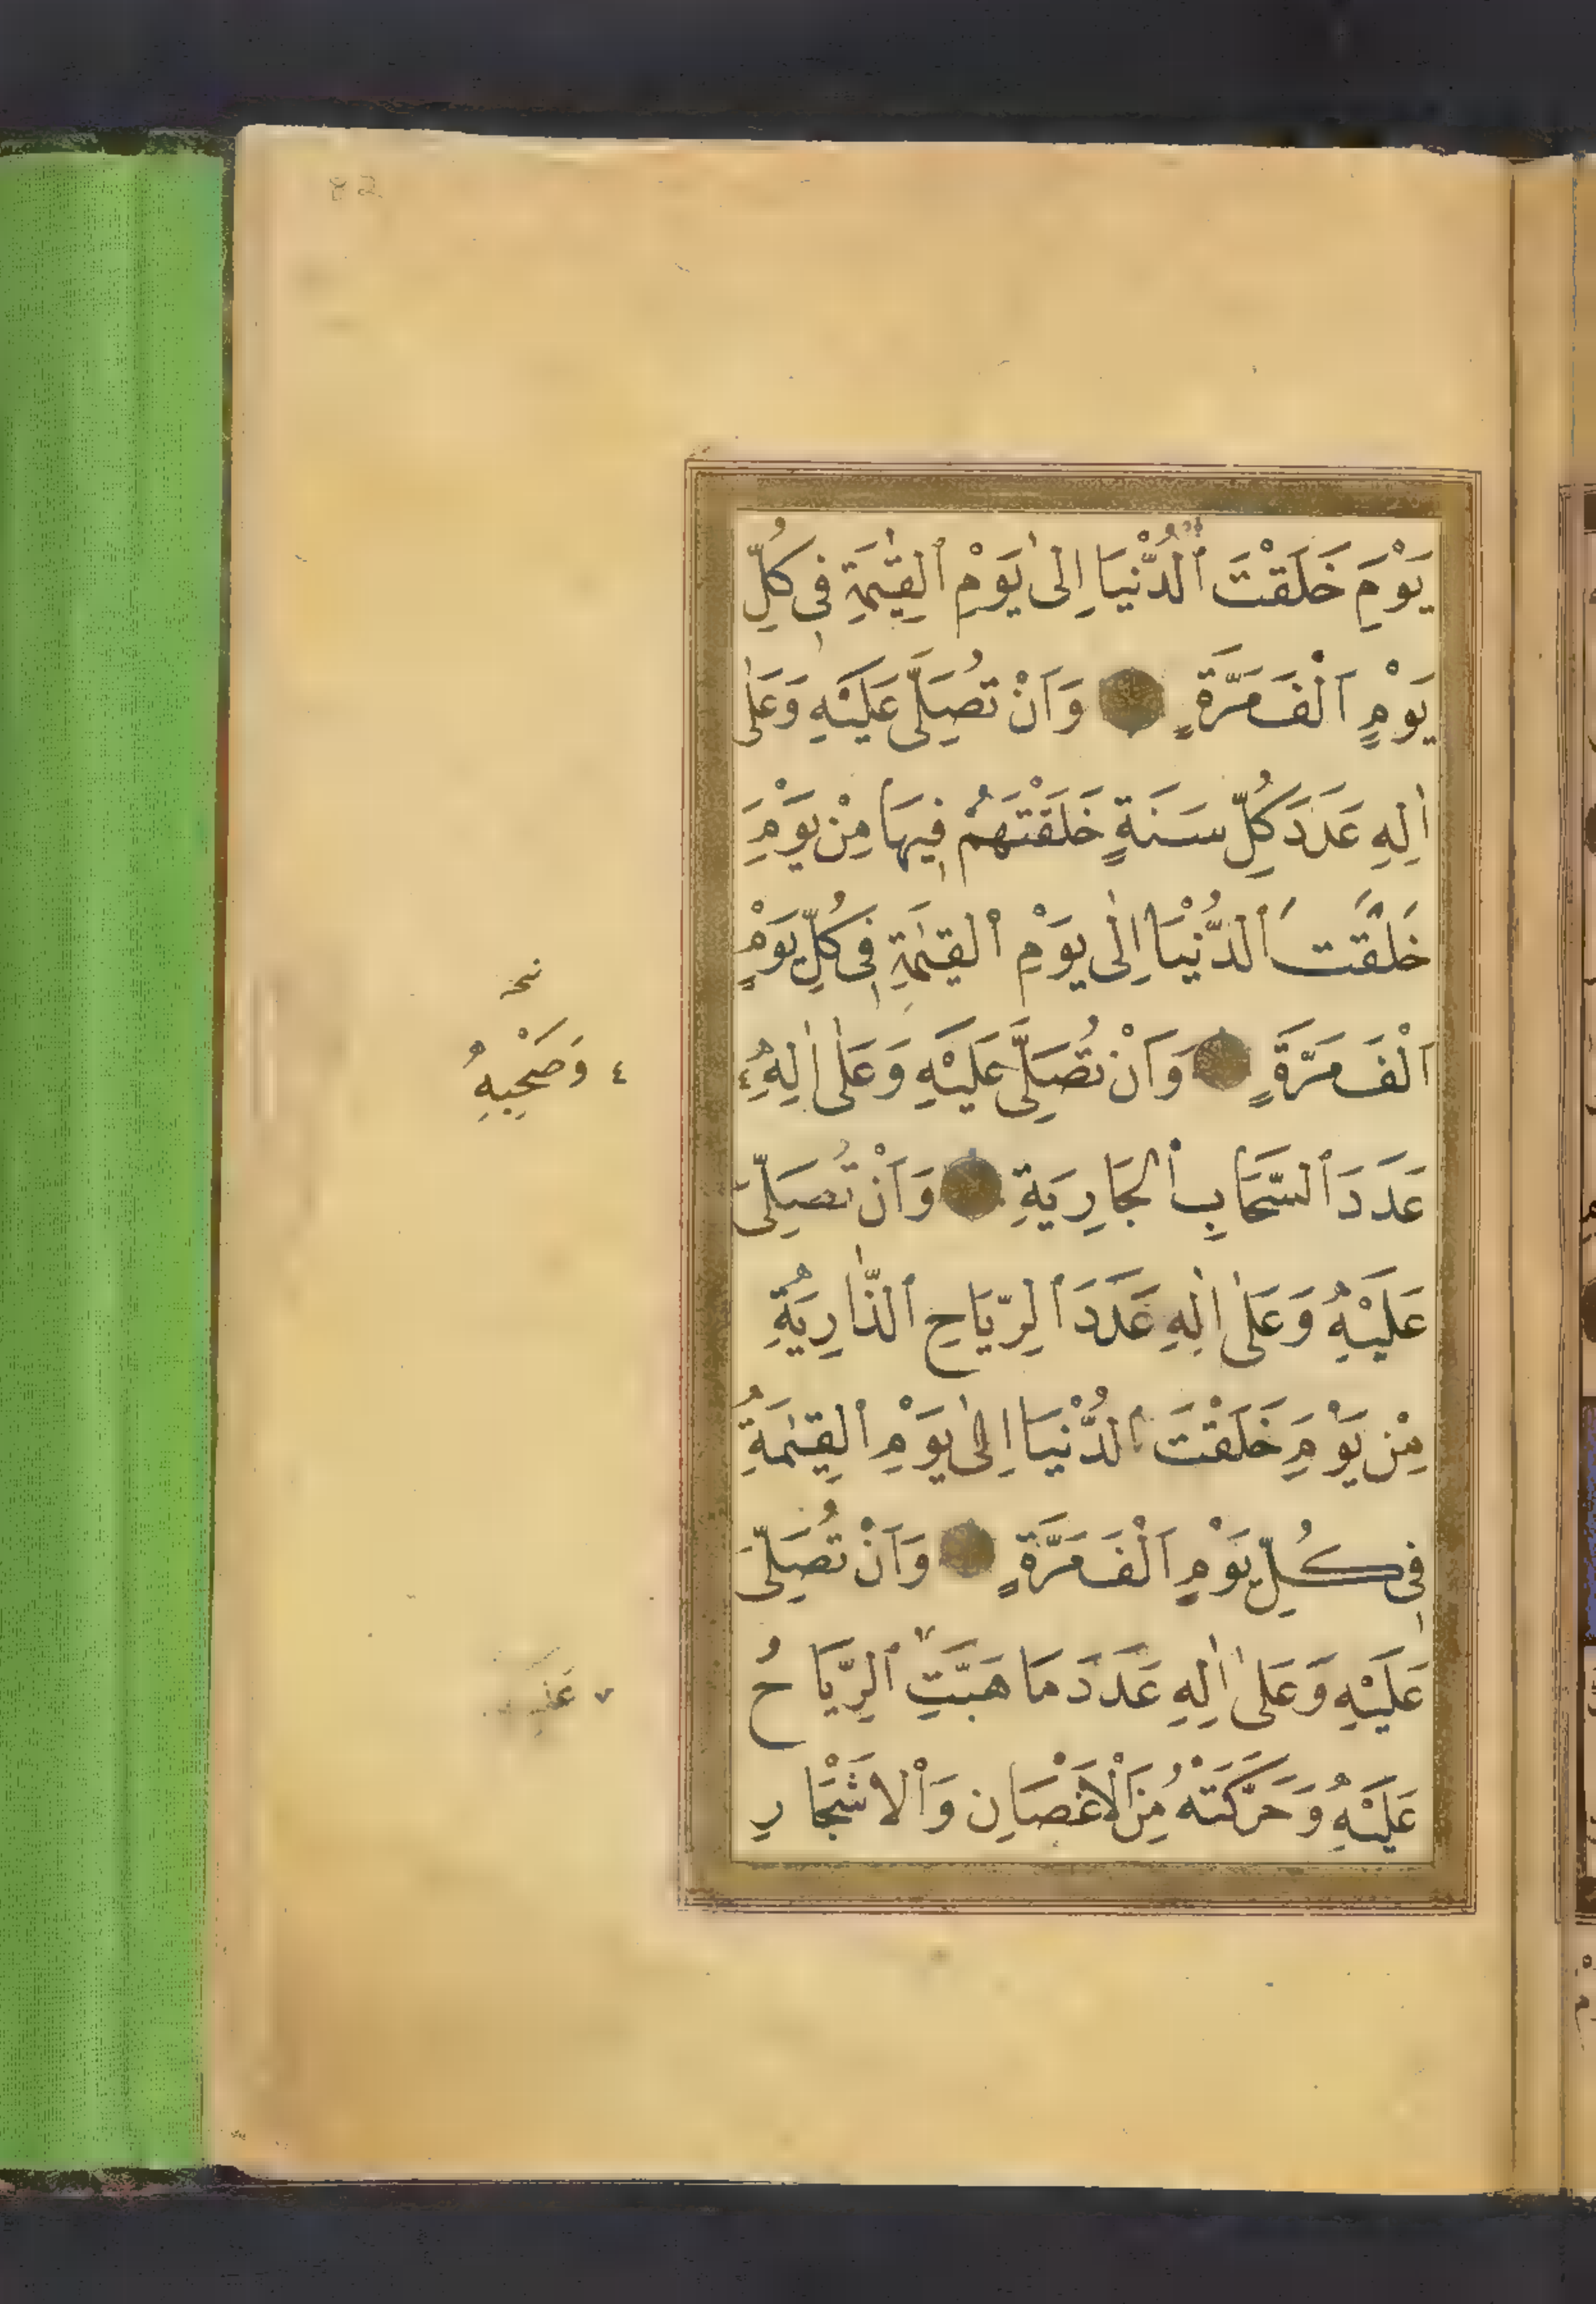 82
يَوْمَ خَلَقْتَ ٱلدُّنْيَا اِلىٰ يَوْمِ ٱلْقِيٰمَةِ فِى كُلِّ
يَوْمٍ اَلْفَ مَرَّةٍ وَاَنْ تُصَلِّىَ عَلَيْهِ وَعَلىٰ
اٰلِهِ عَدَدَ كُلِّ سَنَةٍ خَلَقْتَهُمْ فِيهَا مِنْ يَوْمِ
خَلَقْتَ ٱلدُّنْيَا اِلٰى يَوْمِ ٱلْقِيٰمَةِ فِى كُلِّ يَوْمٍ
اَلْفَ مَرَّةٍ وَاَنْ تُصَلِّىَ عَلَيْهِ وَعَلىٰ اٰلِهِ ٤
نخ
٤ وَصَحْبِهِ
عَدَدَ ٱلسَّحَابِ ٱلْجَارِيَةِ وَاَنْ تُصَلِّىَ
عَلَيْهِ وَعَلىٰ اٰلِهِ عَدَدَ ٱلرِّيَاحِ ٱلذَّارِيَةِ
مِنْ يَوْمِ خَلَقْتَ ٱلدُّنْيَا اِلىٰ يَوْمِ ٱلْقِيٰمَةِ
فِى كُلِّ يَوْمٍ اَلْفَ مَرَّةٍ وَاَنْ تُصَلِّىَ
عَلَيْهِ وَعَلىٰ اٰلِهِ عَدَدَ مَا هَبَّتِ ٱلرِّيَاحُ
عَلَيْهِ وَحَرَّكَتْهُ مِنَ ٱلْاَغْصَانِ وَٱلْاَشْجَارِ